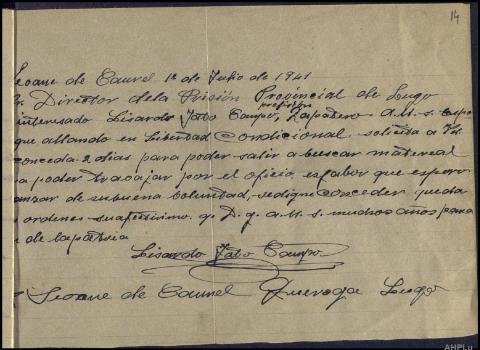 14
Seoane de Caurel 12 de Julio de 1941
Sr. Director dela Prisión Provincial de Lugo
interesado Lisardo Jato Campo, profesion Zapatero a.U.s. espo
que allando en Libertad Condicional solicita a Vd.
conceda 2 dias para poder salir a buscar matereal
a poder trabajar por el oficio, esfabor que espero
canzar de subuena boluntad, sedigne conceder, queda
ordenes suafmisimo. q. D. g. a.U. s. muchos años para
de lapatria
Lisardo Jato Campo
Seoane de Caurel Quiroga Lugo
AHPLu